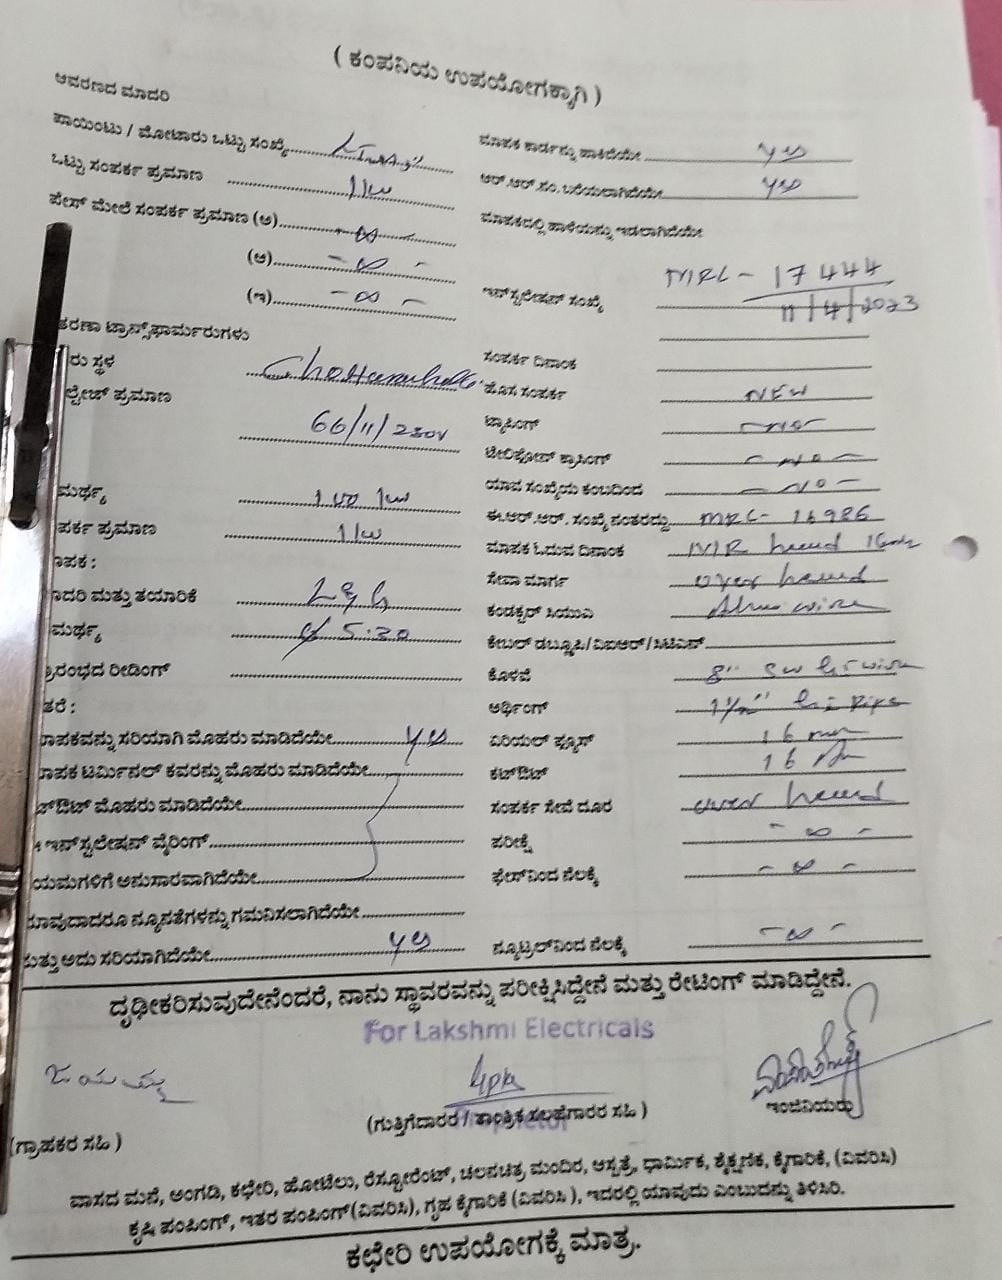 ( ಕಂಪನಿಯ ಉಪಯೋಗಕ್ಕಾಗಿ )
ಆವರಣದ ಮಾದರಿ
ಪಾಯಿಂಟು / ಮೋಟಾರು ಒಟ್ಟು ಸಂಖ್ಯೆ
ಒಟ್ಟು ಸಂಪರ್ಕ ಪ್ರಮಾಣ 1kw
ಪೇಸ್ ಮೇಲೆ ಸಂಪರ್ಕ ಪ್ರಮಾಣ (ಅ)
(ಆ)
(ಇ)
ತರಣಾ ಟ್ರಾನ್ಸ್‌ಫಾರ್ಮರುಗಳು
ರು ಸ್ಥಳ
ಲ್ಟೇಜ್ ಪ್ರಮಾಣ 66/11/230V
ಮರ್ಥ್ಯ
ಪರ್ಕ ಪ್ರಮಾಣ 1kw
ಾಪಕ :
ಾದರಿ ಮತ್ತು ತಯಾರಿಕೆ L & G
ಮರ್ಥ್ಯ 5-30
ಾರಂಭದ ರೀಡಿಂಗ್
ತರೆ :
ಾಪಕವನ್ನು ಸರಿಯಾಗಿ ಮೊಹರು ಮಾಡಿದೆಯೇ yes
ಾಪಕ ಟರ್ಮಿನಲ್ ಕವರನ್ನು ಮೊಹರು ಮಾಡಿದೆಯೇ
ಟ್‌ಔಟ್ ಮೊಹರು ಮಾಡಿದೆಯೇ
ಇನ್‌ಸ್ಟಲೇಷನ್ ವೈರಿಂಗ್
ಯಮಗಳಿಗೆ ಅನುಸಾರವಾಗಿದೆಯೇ
ಾವುದಾದರೂ ನ್ಯೂನತೆಗಳನ್ನು ಗಮನಿಸಲಾಗಿದೆಯೇ
ಮತ್ತು ಅದು ಸರಿಯಾಗಿದೆಯೇ yes
ಮಾಪಕ ಕಾರ್ಡನ್ನು ಹಾಕಿದೆಯೇ yes
ಆರ್.ಆರ್.ಸಂ. ಬರೆಯಲಾಗಿದೆಯೇ yes
ಮಾಪಕದಲ್ಲಿ ಹಾಳೆಯನ್ನು ಇಡಲಾಗಿದೆಯೇ
ಇನ್‌ಸ್ಟಲೇಷನ್ ಸಂಖ್ಯೆ MRL - 17444
11/4/2023
ಸಂಪರ್ಕ ದಿನಾಂಕ
ಹೊಸ ಸಂಪರ್ಕ NEW
ಟ್ಯಾಪಿಂಗ್ - NO -
ಟೆಲಿಫೋನ್ ಕ್ರಾಸಿಂಗ್ - NO -
ಯಾವ ಸಂಖ್ಯೆಯ ಕಂಬದಿಂದ - NO -
ಈ.ಆರ್.ಆರ್. ಸಂಖ್ಯೆ ನಂತರದ್ದು MRL - 16986
ಮಾಪಕ ಓದುವ ದಿನಾಂಕ
ಸೇವಾ ಮಾರ್ಗ over head
ಕಂಡಕ್ಟರ್ ಸಿಯುಎ wire
ಕೇಬಲ್ ಡಬ್ಲ್ಯೂಪಿ/ವಿಐಆರ್/ಸಿಟಿಎಸ್
ಕೊಳವೆ 8"
ಅರ್ಥಿಂಗ್ 1½" pipe
ಏರಿಯಲ್ ಫ್ಯೂಸ್ 16
ಕಟ್‌ಔಟ್ 16
ಸಂಪರ್ಕ ಸೇವೆ ದೂರ over head
ಪರೀಕ್ಷೆ
ಫೇಸ್‌ನಿಂದ ನೆಲಕ್ಕೆ
ನ್ಯೂಟ್ರಲ್‌ನಿಂದ ನೆಲಕ್ಕೆ
ದೃಢೀಕರಿಸುವುದೇನೆಂದರೆ, ನಾನು ಸ್ಥಾವರವನ್ನು ಪರೀಕ್ಷಿಸಿದ್ದೇನೆ ಮತ್ತು ರೇಟಿಂಗ್ ಮಾಡಿದ್ದೇನೆ.
For Lakshmi Electricals
ಜಯಮ್ಮ
(ಗ್ರಾಹಕರ ಸಹಿ )
(ಗುತ್ತಿಗೆದಾರರ / ತಾಂತ್ರಿಕ ಸಲಹೆಗಾರರ ಸಹಿ )
ಇಂಜಿನಿಯರು
ವಾಸದ ಮನೆ, ಅಂಗಡಿ, ಕಛೇರಿ, ಹೋಟೆಲು, ರೆಸ್ಟೋರೆಂಟ್, ಚಲನಚಿತ್ರ ಮಂದಿರ, ಆಸ್ಪತ್ರೆ, ಧಾರ್ಮಿಕ, ಶೈಕ್ಷಣಿಕ, ಕೈಗಾರಿಕೆ, (ವಿವರಿಸಿ)
ಕೃಷಿ ಪಂಪಿಂಗ್, ಇತರ ಪಂಪಿಂಗ್ (ವಿವರಿಸಿ), ಗೃಹ ಕೈಗಾರಿಕೆ (ವಿವರಿಸಿ ), ಇದರಲ್ಲಿ ಯಾವುದು ಎಂಬುದನ್ನು ತಿಳಿಸಿರಿ.
ಕಛೇರಿ ಉಪಯೋಗಕ್ಕೆ ಮಾತ್ರ.